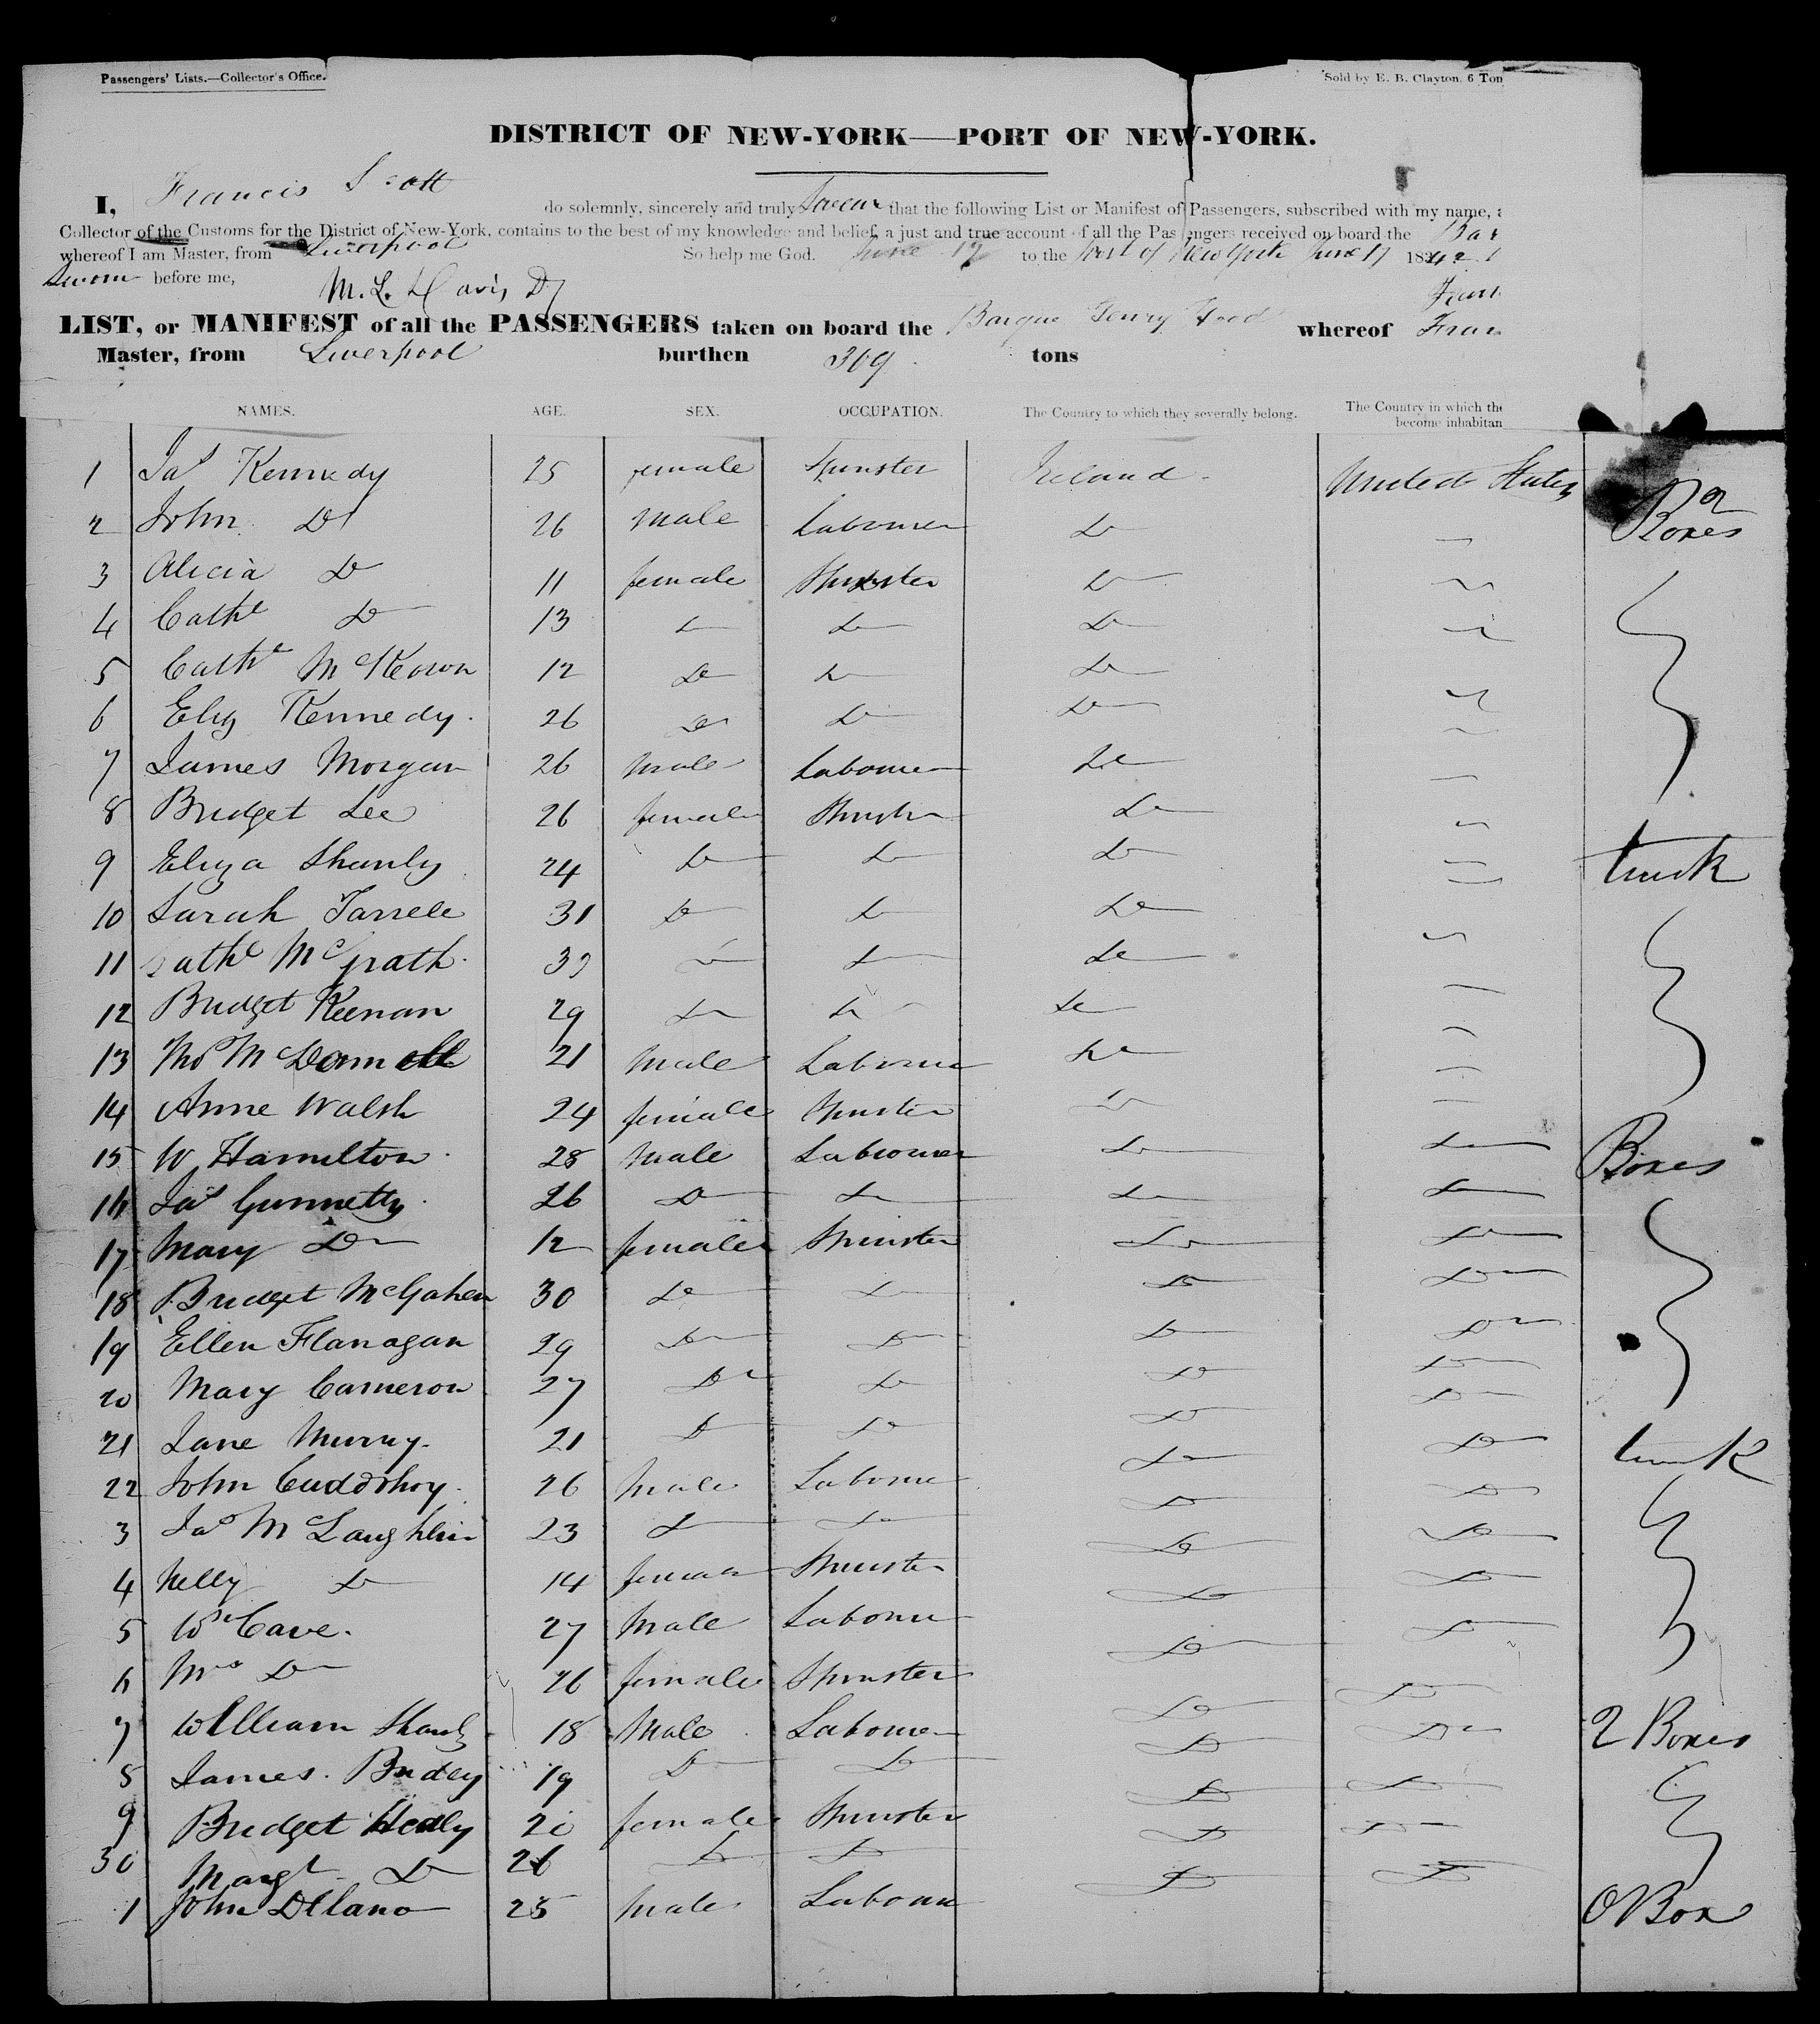 Passengers' Lists.—Collector's Office.
Sold by E. B. Clayton, 6 Ton
DISTRICT OF NEW-YORK—PORT OF NEW-YORK.
I, Francis Scott do solemnly, sincerely and truly Swear that the following List or Manifest of Passengers, subscribed with my name, a
Collector of the Customs for the District of New-York, contains to the best of my knowledge and belief, a just and true account of all the Passengers received on board the Bar
whereof I am Master, from Liverpool So help me God. June 17 to the Port of New York June 17 1842
Sworn before me, M. L. Davis Dy Fran
LIST, or MANIFEST of all the PASSENGERS taken on board the Barque Henry Hood whereof Fran
Master, from Liverpool burthen 369 tons
NAMES. AGE. SEX. OCCUPATION. The Country to which they severally belong. The Country in which the
become inhabitan
1 Jas Kennedy 25 female Spinster Ireland United States 2
2 John Do 26 Male Labourer Do Boxes
3 Alicia Do 11 female Spinster Do
4 Cathe Do 13 Do Do Do
5 Cathe McKeown 12 Do Do Do
6 Eliz Kennedy 26 Do Do Do
7 James Morgan 26 Male Labourer Do
8 Bridget Lee 26 female Spinster Do
9 Eliza Shanly 24 Do Do Do trunk
10 Sarah Farrell 31 Do Do Do
11 Cathe McGrath 39 Do Do Do
12 Bridget Keenan 29 Do Do Do
13 Thos McDonnell 21 Male Labourer Do
14 Anne Walsh 24 female Spinster Do
15 W Hamilton 28 Male Labourer Do Do Boxes
16 Jas Gunnetty 26 Do Do Do Do
17 Mary Do 12 female Spinster Do Do
18 Bridget McGahen 30 Do Do Do Do
19 Ellen Flanagan 29 Do Do Do Do
20 Mary Cameron 27 Do Do Do Do
21 Jane Murray 21 Do Do Do Do trunk
22 John Cuddohoy 26 Male Labourer Do Do
3 Jas McLaughlin 23 Do Do Do Do
4 Nelly Do 14 female Spinster Do Do
5 Wm Cave 27 Male Labourer Do Do
6 Mrs Do 26 female Spinster Do Do
7 William Shanly 18 Male Labourer Do Do 2 Boxes
8 James 19 Do Do Do Do
9 Bridget Healy 20 female Spinster Do Do
30 Margt Do 26 Do Do Do Do
1 John Dllano 25 Male Labourer Do Do Box